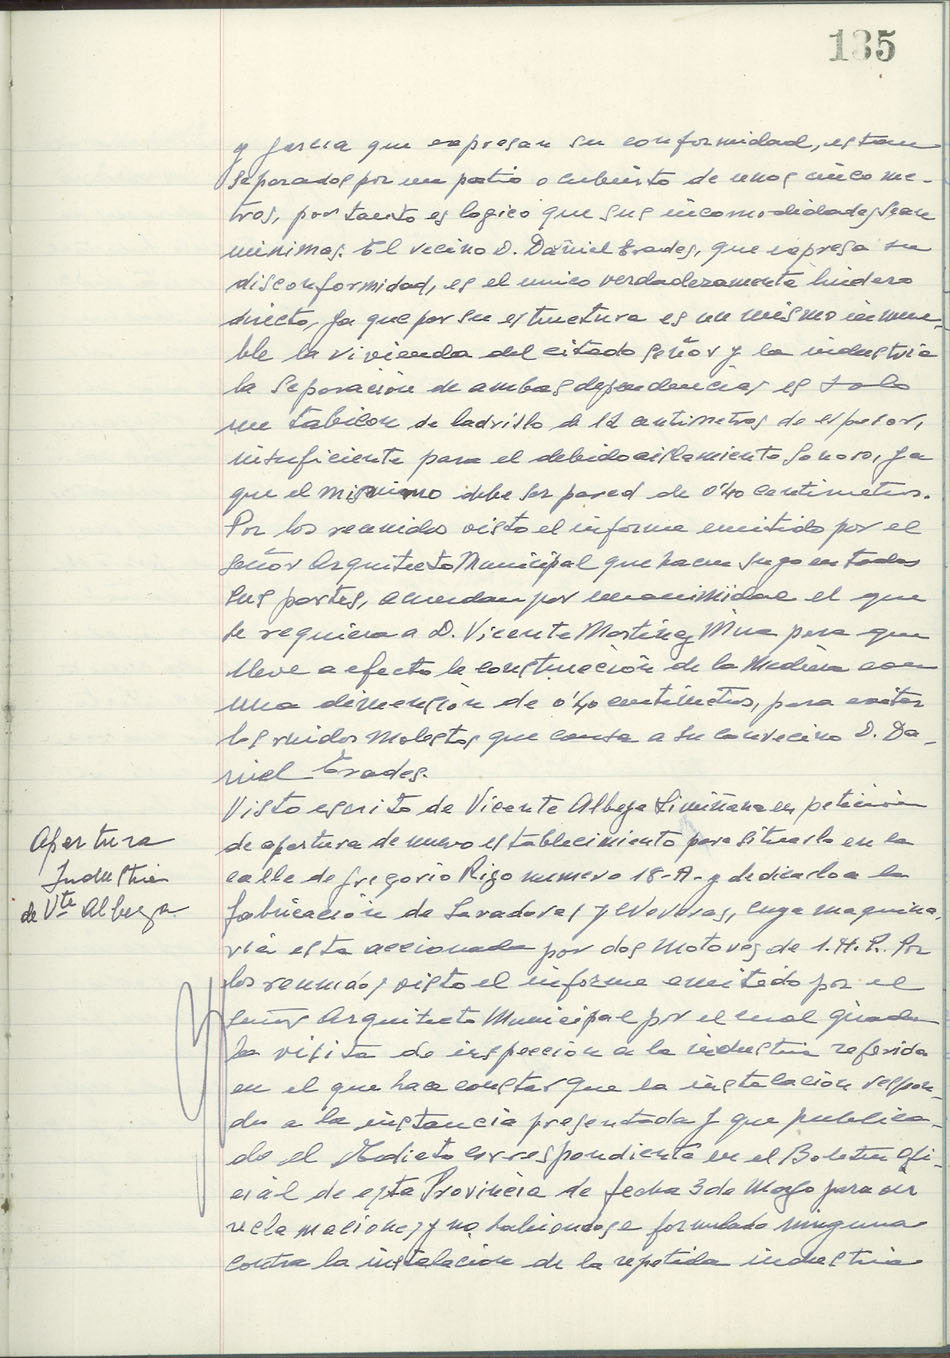 135
y Garcia que expresan su conformidad, estan
separados por un patio o cubierto de unos cinco me-
tros, por tanto es logico que sus incomodidades sean
minimas. El vecino D. Daniel Erades, que expresa su
disconformidad, es el unico verdaderamente lindero
directo, ya que por su estructura es un mismo inmue-
ble la vivienda del citado señor y la industria
la separación de ambas dependencias es solo
un tabicon de ladrillo de 12 centimetros de espesor,
insuficiente para el debido aislamiento sonoro, ya
que el mismo debe ser pared de 0'40 centimetros.
Por los reunidos visto el informe emitido por el
señor Arquitecto Municipal que hacen suyo en todas
sus partes, acuerdan por unanimidad el que
se requiera a D. Vicente Martinez Mira para que
lleve a efecto la construcción de la medianera con
una dimensión de 0'40 centimetros, para evitar
los ruidos molestos que causa a su convecino D. Da-
niel Erades.
Visto escrito de Vicente Albeza Limiñana en petición
de apertura de nuevo establecimiento para situarlo en la
calle de Gregorio Rizo numero 18-A- y dedicarlo a la
fabricación de Lavadoras y neveras, cuya maquina-
ria esta accionada por dos motores de 1. H.P. Por
los reunidos visto el informe emitido por el
señor Arquitecto Municipal por el cual girada
la visita de inspección a la industria referida
en el que hace constar que la instalación respon-
de a la instancia presentada y que publica-
do el Edicto correspondiente en el Boletin Ofi-
cial de esta Provincia de fecha 3 de Mayo para oir
reclamaciones y no habiendose formulado ninguna
contra la instalación de la repetida industria
Apertura
Industria
de Vte Albeza